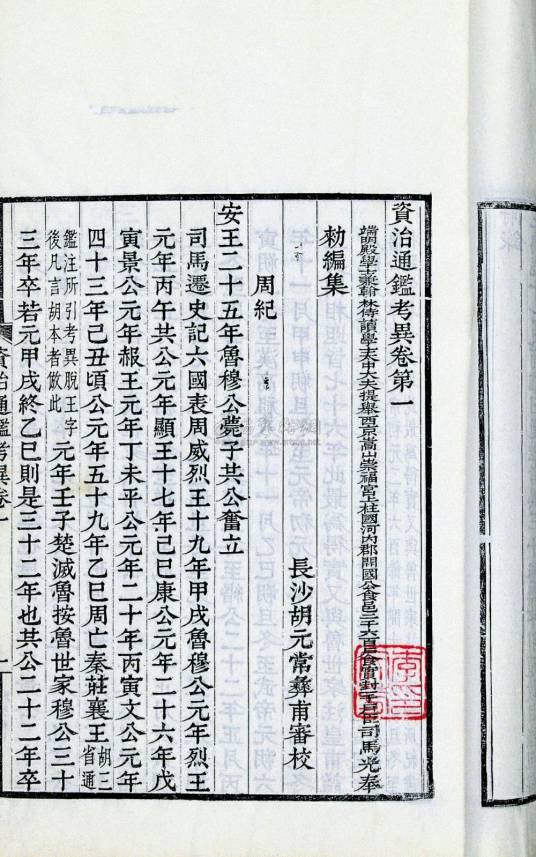 資治通鑑考異卷第一
端明殿學士兼翰林侍讀學士太中大夫提舉西京嵩山崇福宮上柱國河內郡開國公食邑二千六百戶食實封一千戶臣司馬光奉
勑編集
長沙胡元常彝甫審校
周紀
安王二十五年魯穆公薨子共公奮立
司馬遷史記六國表周威烈王十九年甲戌魯穆公元年烈王
元年丙午共公元年顯王十七年己巳康公元年二十六年戊
寅景公元年赧王元年丁未平公元年二十年丙寅文公元年
四十三年己丑頃公元年五十九年乙巳周亡秦莊襄王胡三省通
鑑注所引考異脫王字後凡言胡本者倣此元年壬子楚滅魯按魯世家穆公三十
三年卒若元甲戌終乙巳則是三十二年也共公二十二年卒
資治通鑑考異卷一
一